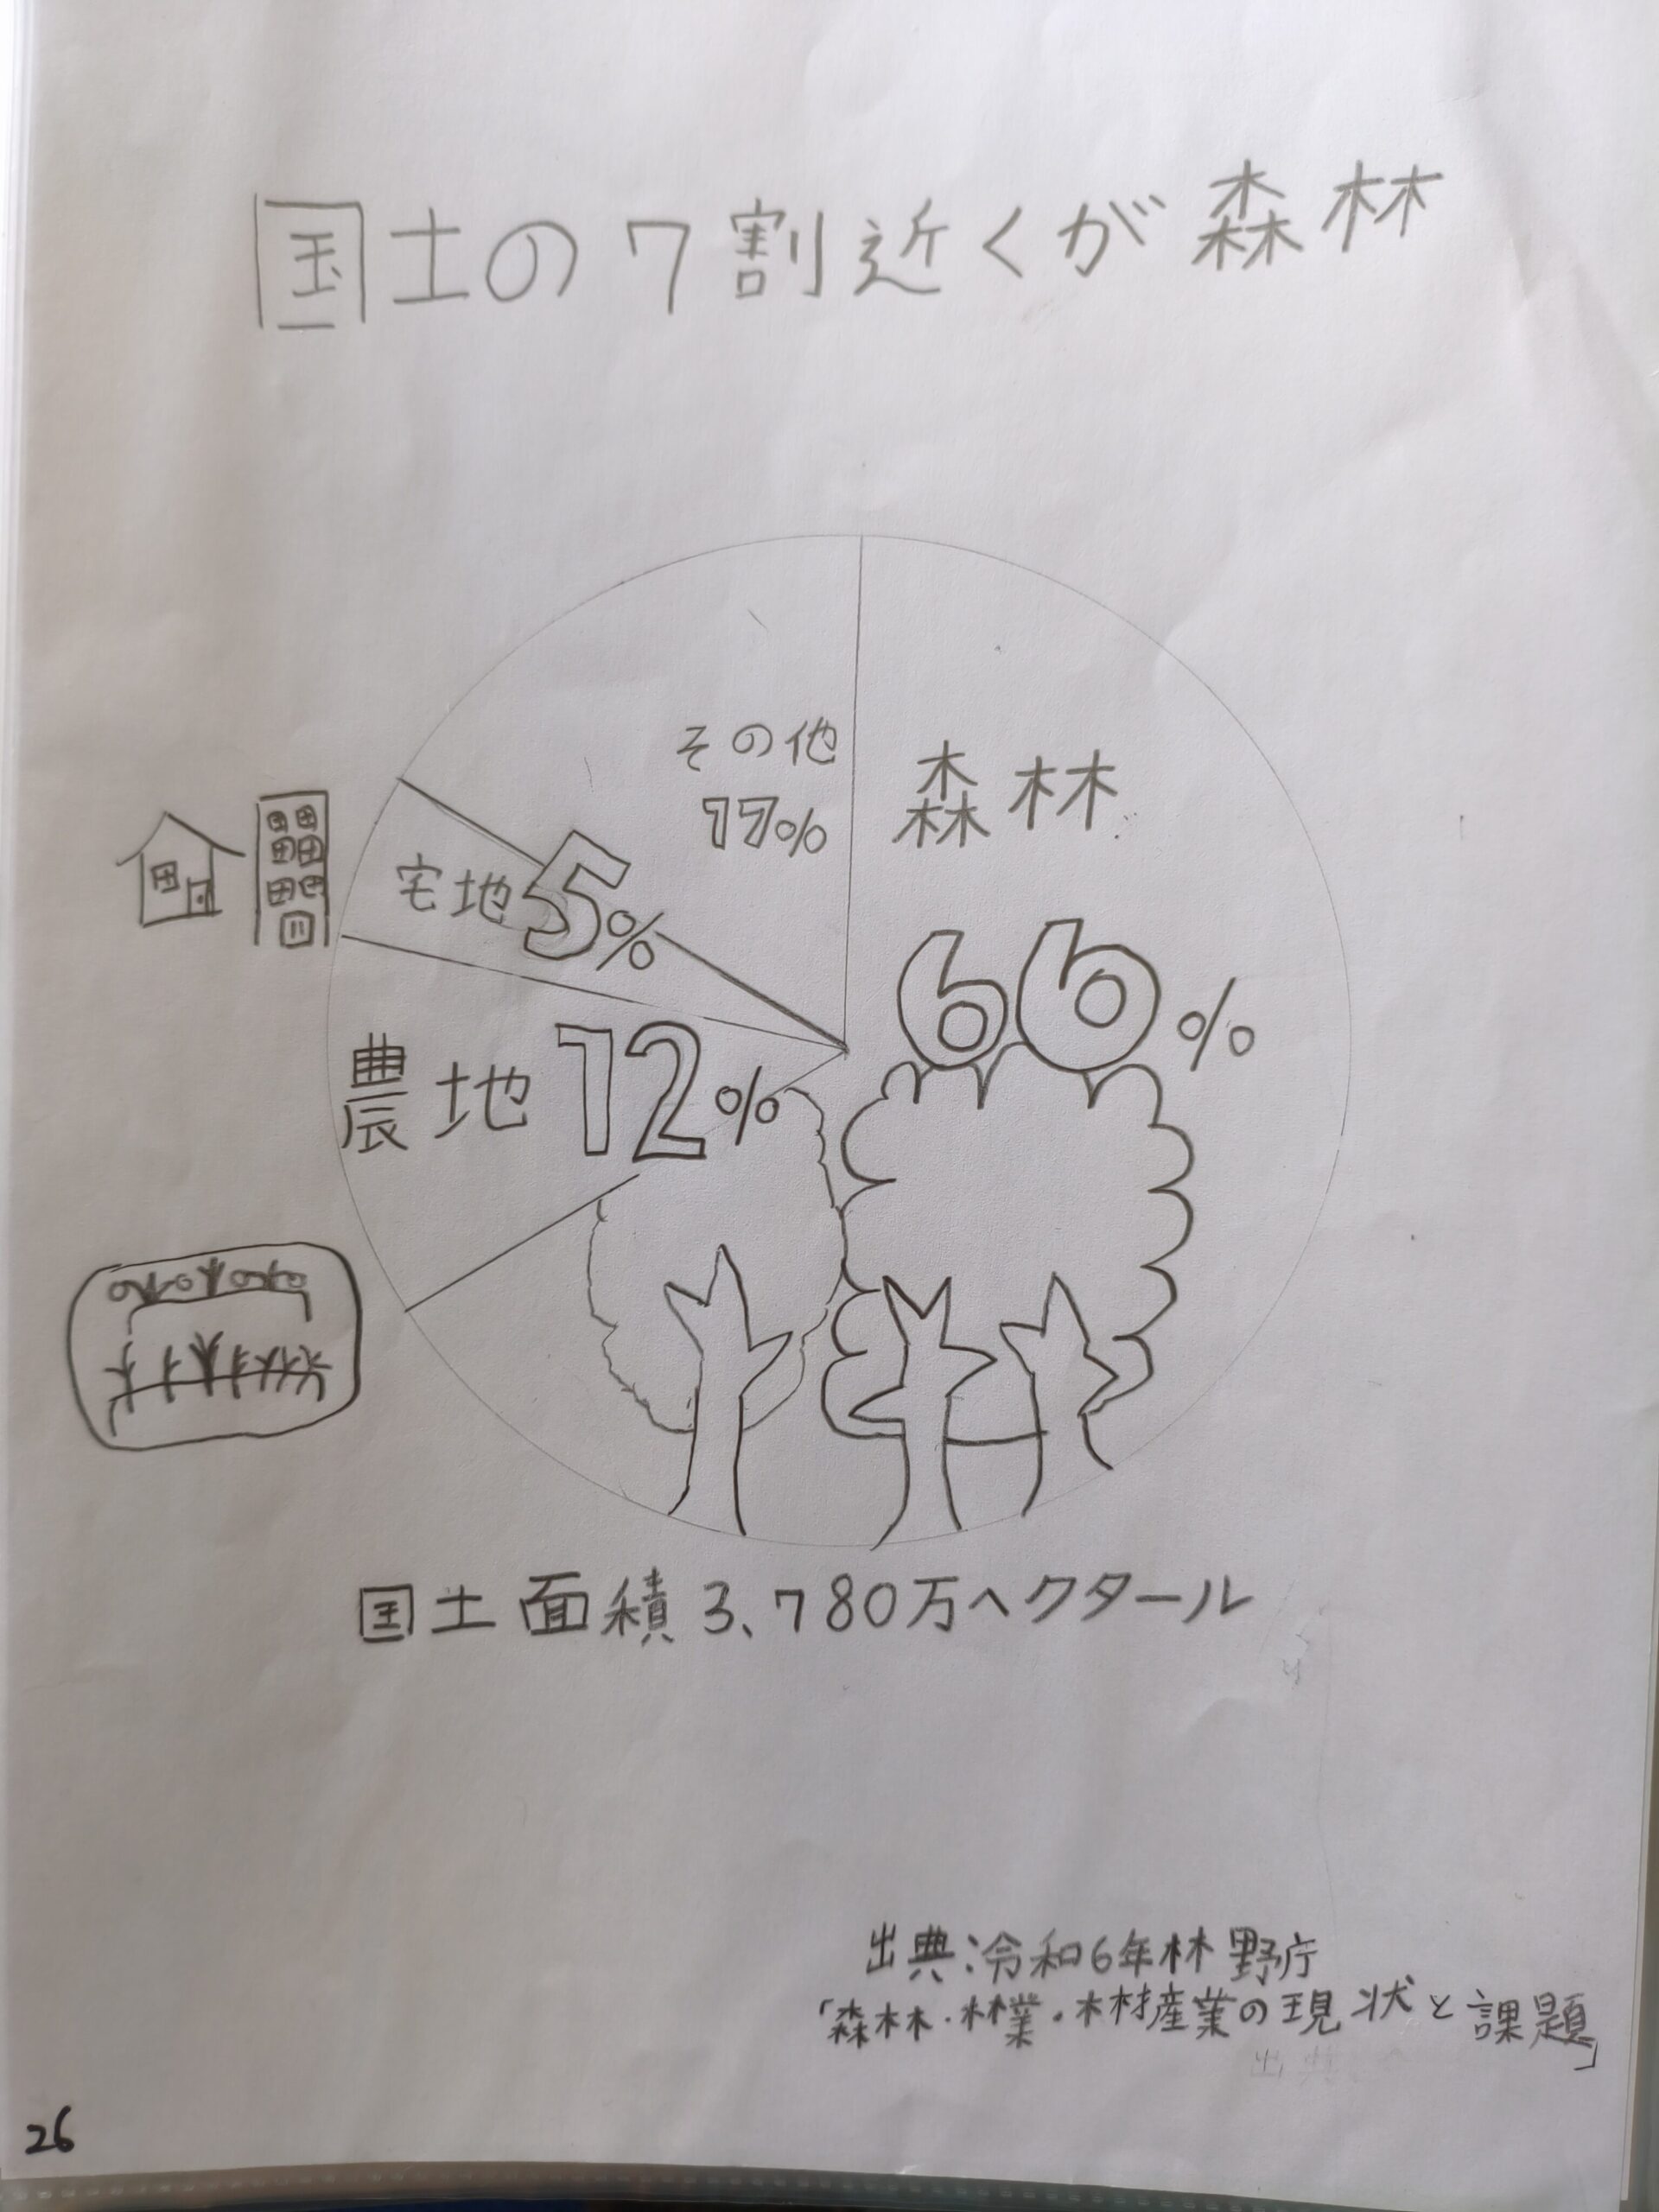 国土の7割近くが森林
その他
17%
森林
宅地5%
66%
農地12%
国土面積3,780万ヘクタール
出典:令和6年林野庁
「森林・林業・木材産業の現状と課題」
26